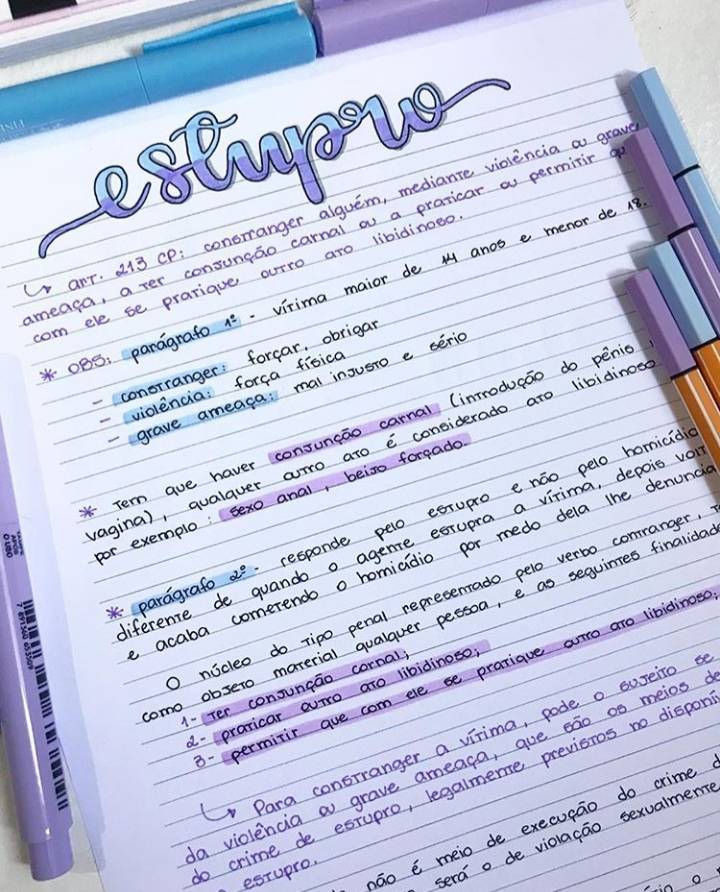 estupro
↳ art. 213 CP: constranger alguém, mediante violência ou grave
ameaça, a ter conjunção carnal ou a praticar ou permitir qu
com ele se pratique outro ato libidinoso.
* OBS: parágrafo 1º - vítima maior de 14 anos e menor de 18.
- constranger: forçar, obrigar
- violência: força física
- grave ameaça: mal injusto e sério
* Tem que haver conjunção carnal (introdução do pênis
vagina), qualquer outro ato é considerado ato libidinoso
por exemplo: sexo anal, beijo forçado.
* parágrafo 2º - responde pelo estupro e não pelo homicídio
diferente de quando o agente estupra a vítima, depois volt
e acaba cometendo o homicídio por medo dela lhe denuncia
O núcleo do tipo penal representado pelo verbo contranger, t
como objeto material qualquer pessoa, e as seguintes finalidad
1- Ter conjunção carnal;
2- praticar outro ato libidinoso;
3- permitir que com ele se pratique outro ato libidinoso;
↳ Para constranger a vítima, pode o sujeito se
da violência ou grave ameaça, que são os meios de
do crime de estupro, legalmente previstos no disponi
estupro.
não é meio de execução do crime d
será o de violação sexualmente
7 891360 653509